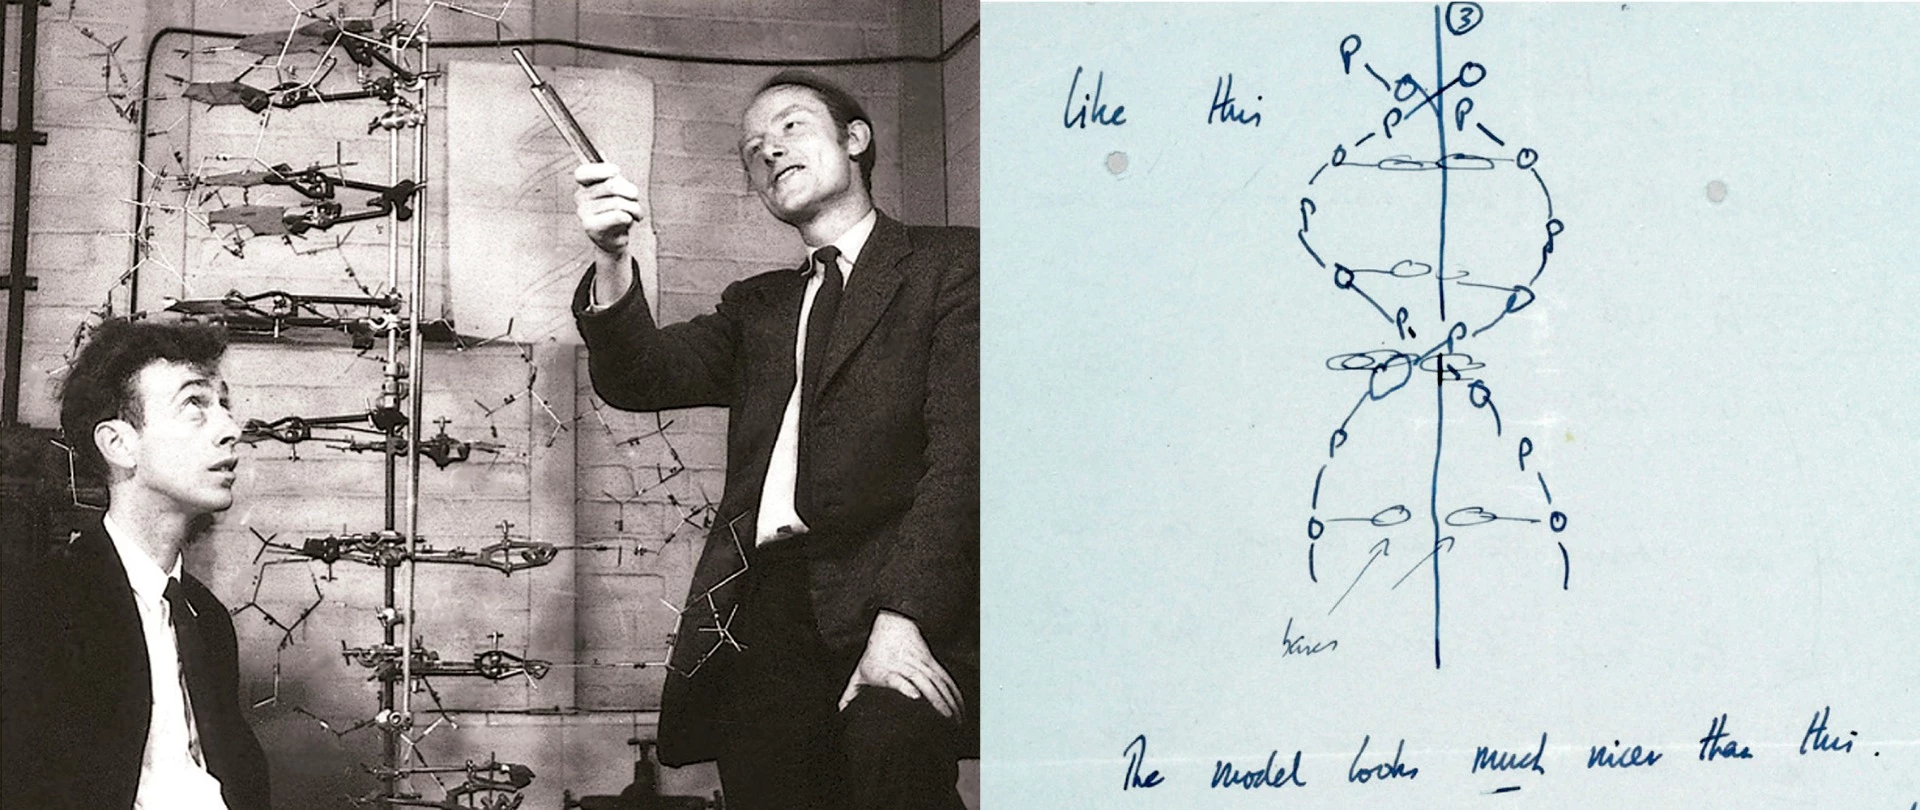 3
Like this
P
O
O
P
P
O
O
P
P
O
O
P
P
O
O
P
P
O
O
bases
The model looks much nicer than this.